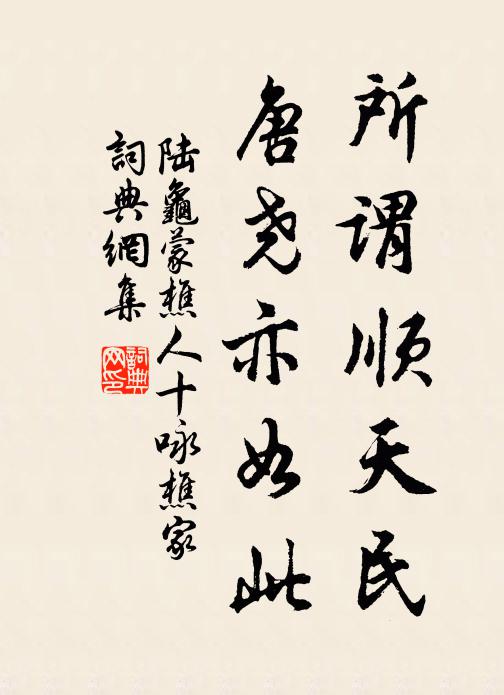 所謂順天民
唐尧亦如此
陸龜蒙樵人十咏樵家
詞典網集
詞典网印